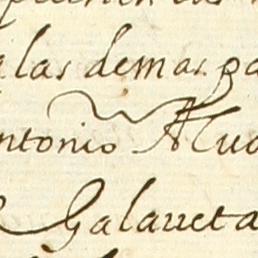 a las demas pa
ntonio Alua
Galarreta